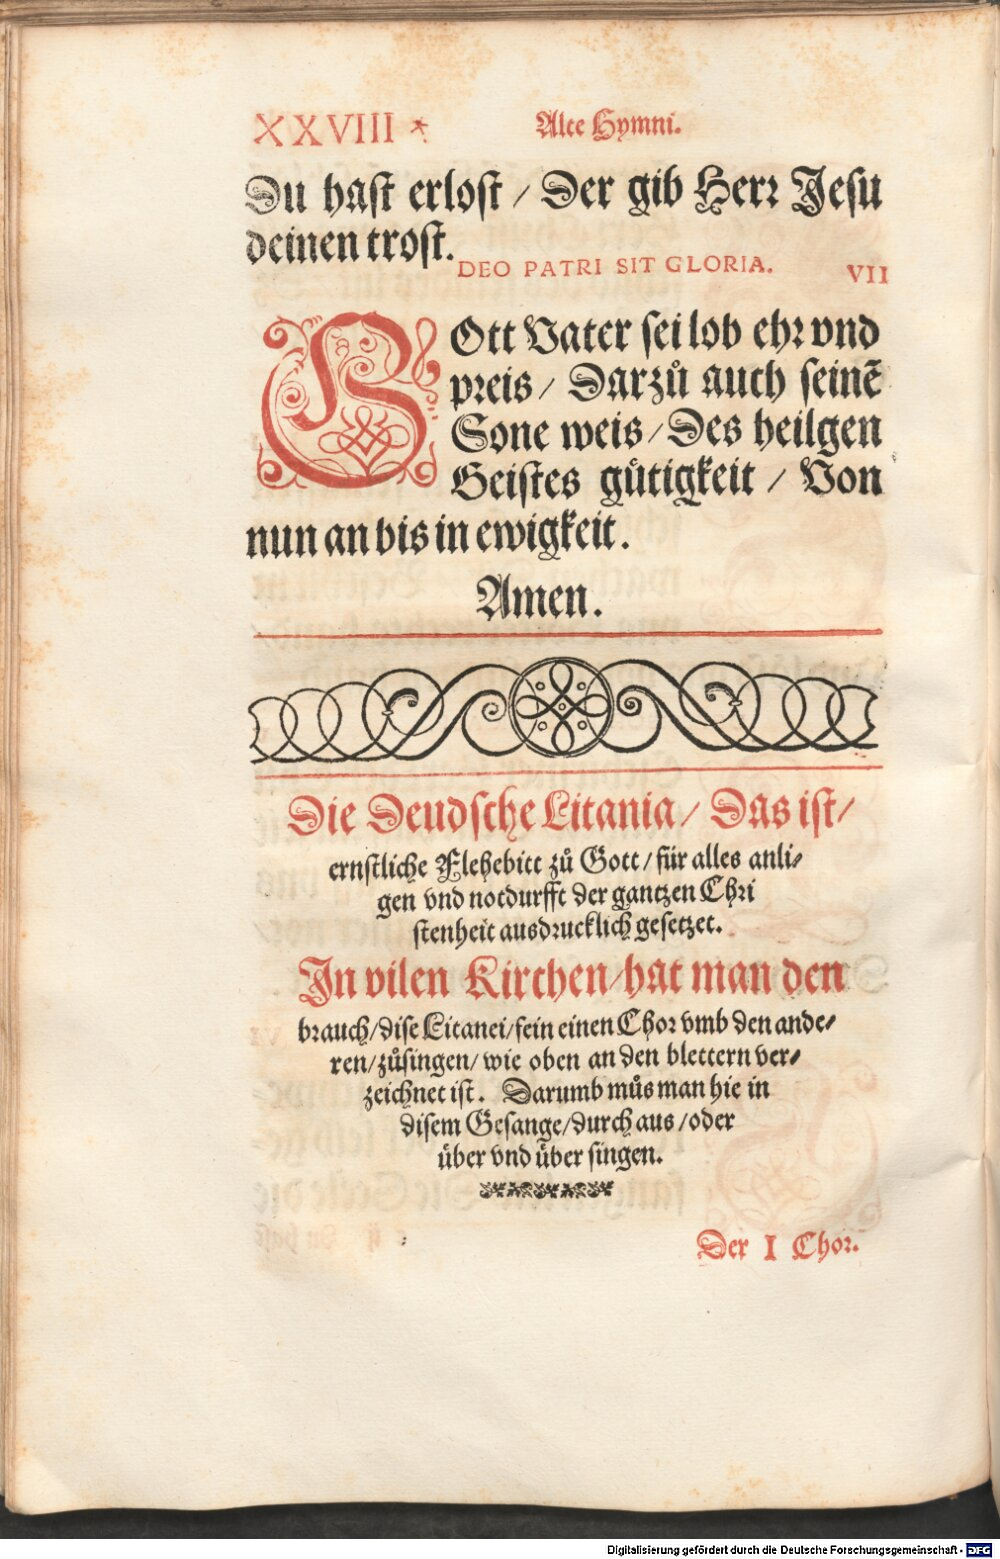 XXVIII * Alte Hymni.
Du hast erlost / Der gib Herr Jesu
deinen trost.
DEO PATRI SIT GLORIA. VII
GOtt Vater sei lob ehr vnd
preis / Darzů auch seinē
Sone weis / Des heilgen
Geistes gůtigkeit / Von
nun an bis in ewigkeit.
Amen.
Die Deudsche Litania / Das ist /
ernstliche Flehebitt zů Gott / für alles anli⸗
gen vnd notdurfft der gantzen Chri
stenheit ausdrucklich gesetzet.
In vilen Kirchen / hat man den
brauch / dise Litanei / fein einen Chor vmb den ande⸗
ren / zůsingen / wie oben an den blettern ver⸗
zeichnet ist. Darumb můs man hie in
disem Gesange / durch aus / oder
über vnd über singen.
Der I Chor.
Digitalisierung gefördert durch die Deutsche Forschungsgemeinschaft - DFG